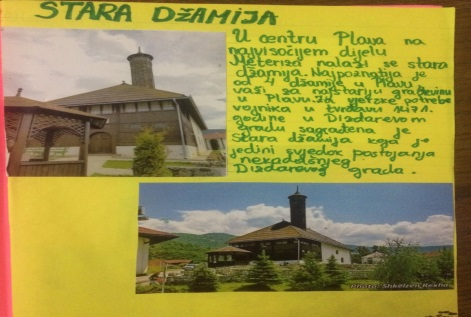 STARA DŽAMIJA
U centru Plava na
najvisočijem dijelu
Meteriza nalazi se stara
džamija. Najpoznatija je
od 4 džamije u Plavu i
važi za najstariju građevinu
u Plavu. Za vjerske potrebe
vojnika u tvrđavi 1471.
godine u Dizdarevom
gradu sagrađena je
Stara džamija koja je
jedini svjedok postojanja
nekadašnjeg
Dizdarevog grada.
Photo: Shkelzen Rexha